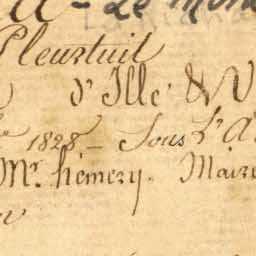 Pleurtuit
d'Ille & V
1828 _ Sous L'A
Mr. hémery. Maire